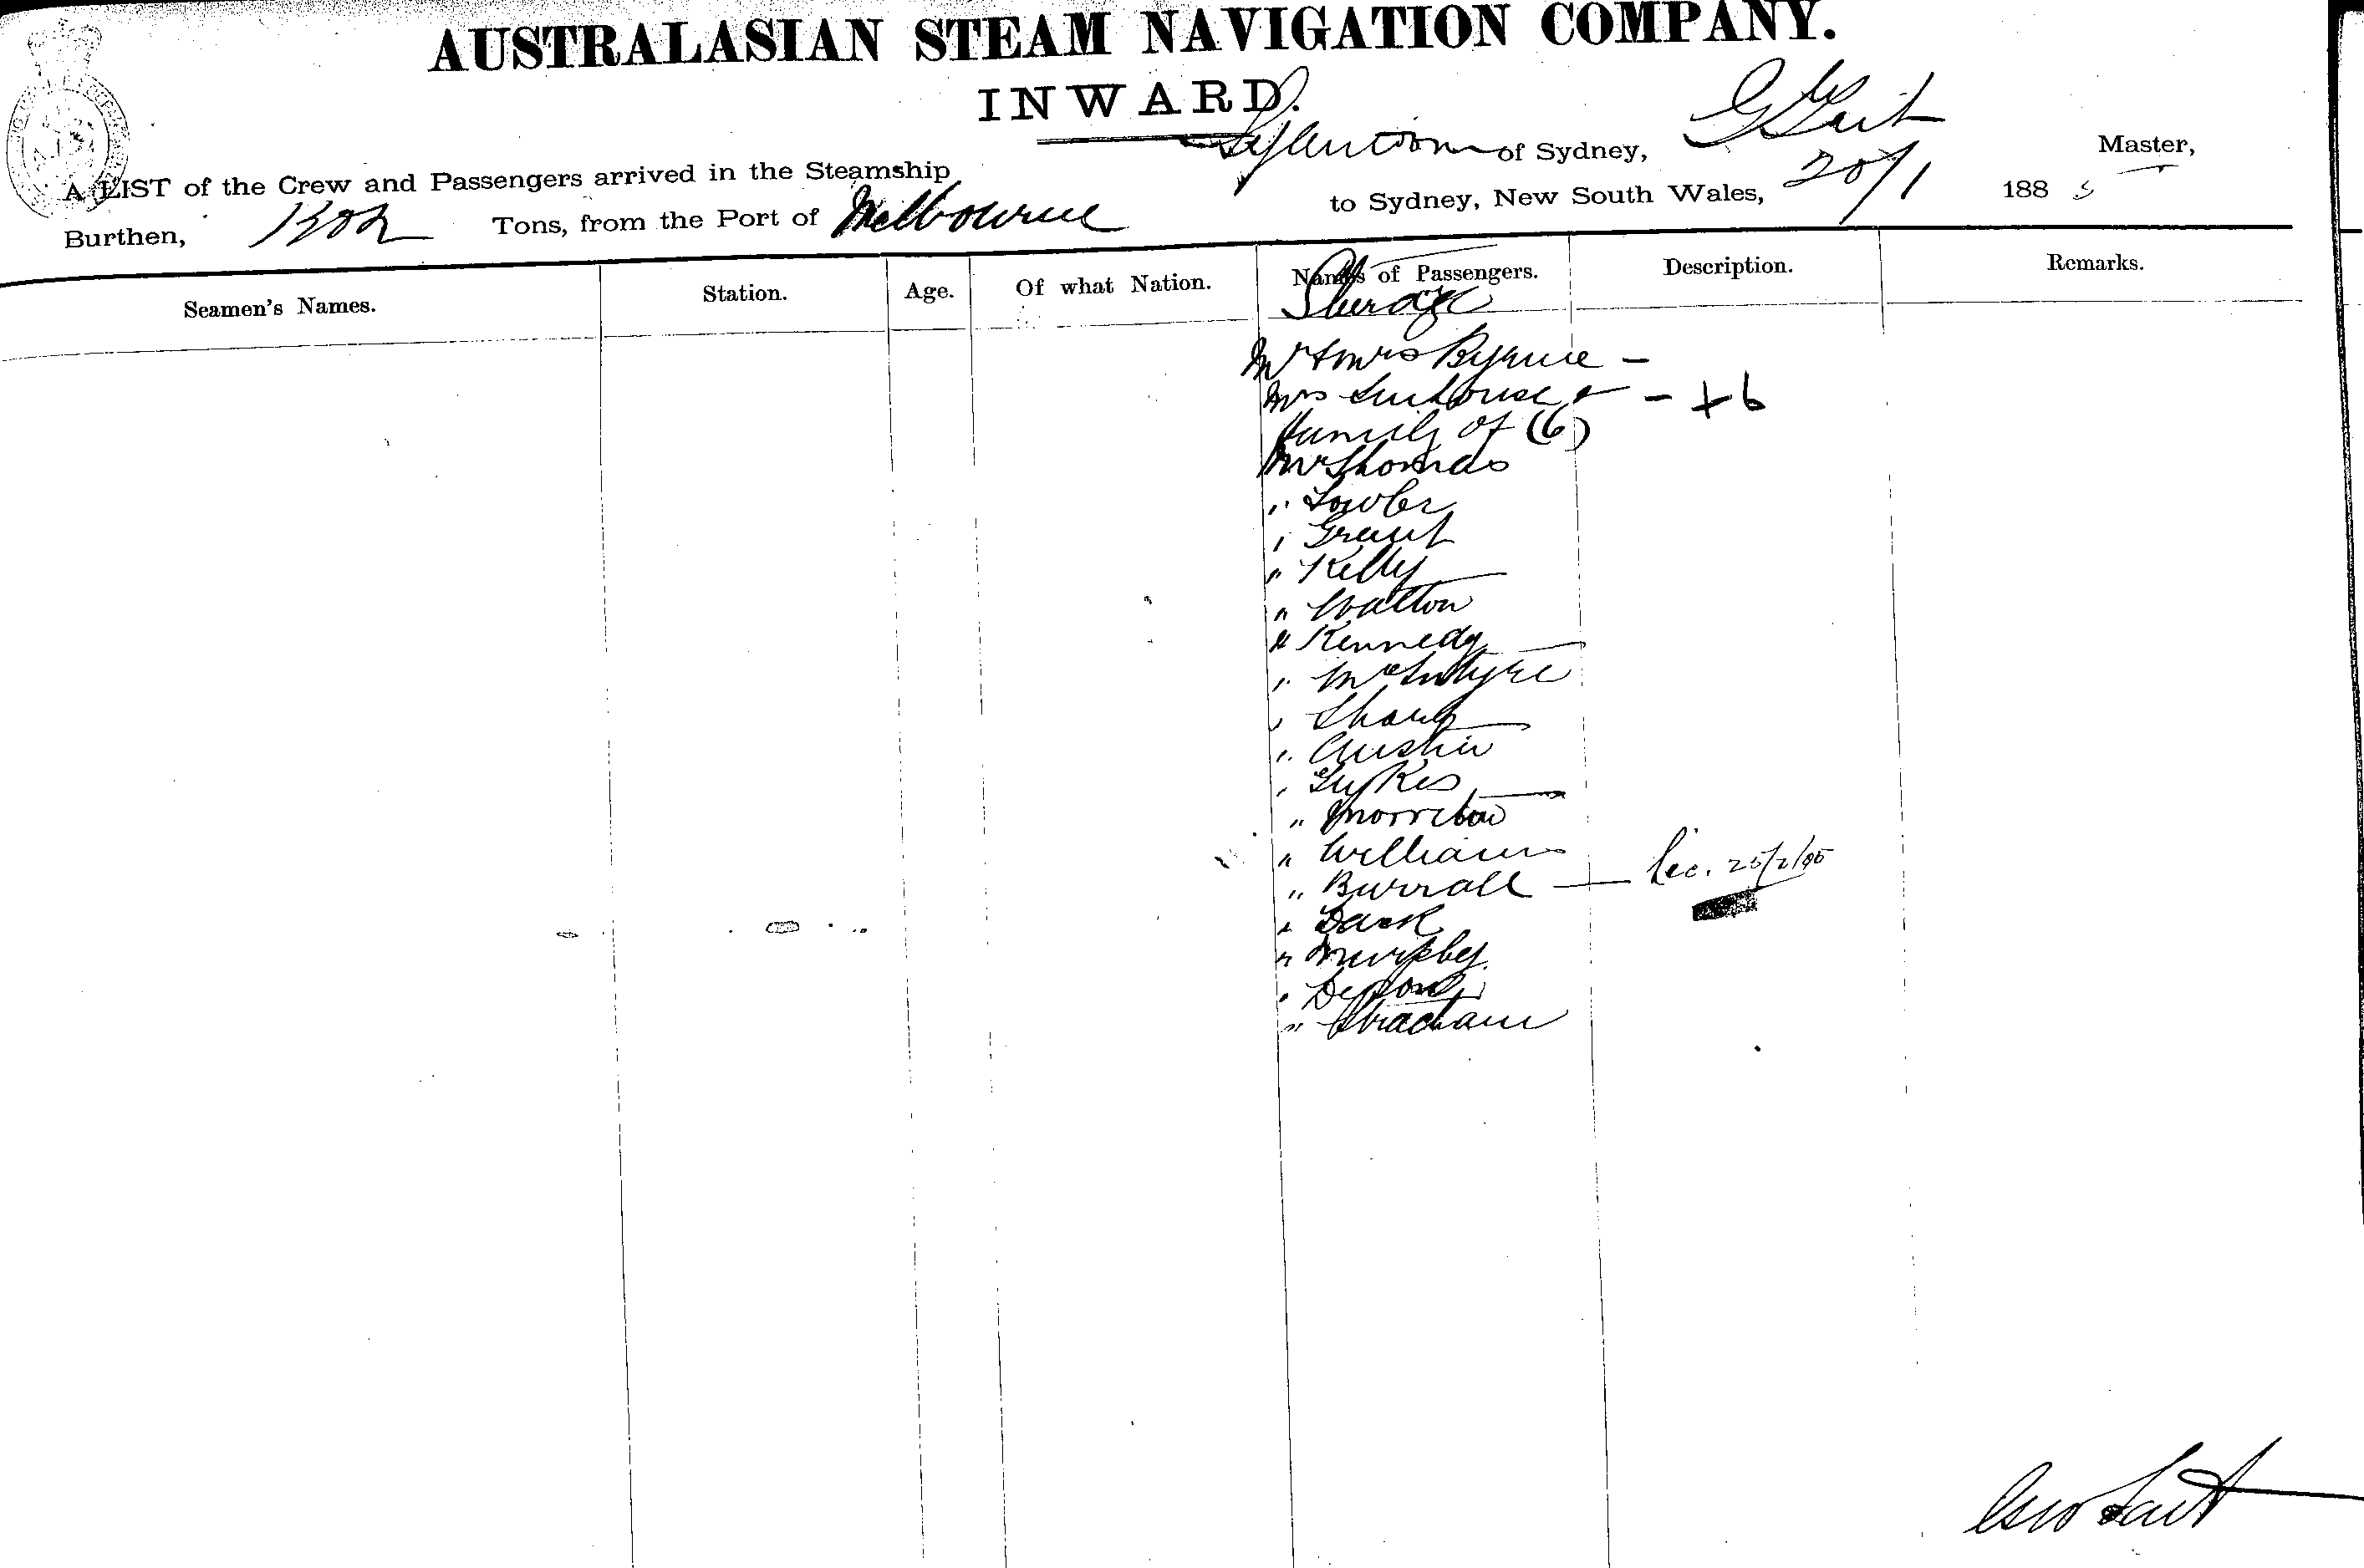 AUSTRALASIAN STEAM NAVIGATION COMPANY.
INWARD.
A LIST of the Crew and Passengers arrived in the Steamship of Sydney, Master,
Burthen, Tons, from the Port of Melbourne to Sydney, New South Wales, 20/1 188
Seamen's Names. Station. Age. Of what Nation. Names of Passengers. Description. Remarks.
Steerage
Mr & Mrs Byrne –
Mrs – + 6
family of (6)
Mr Thomas
" Fowler
" Grant
" Kelly
" Walton
" Kennedy
" McIntyre
" Sharp
" Austin
" Sykes
"
" Williams
" Burrall
" Dack
" Murphy
"
" Abraham
Geo